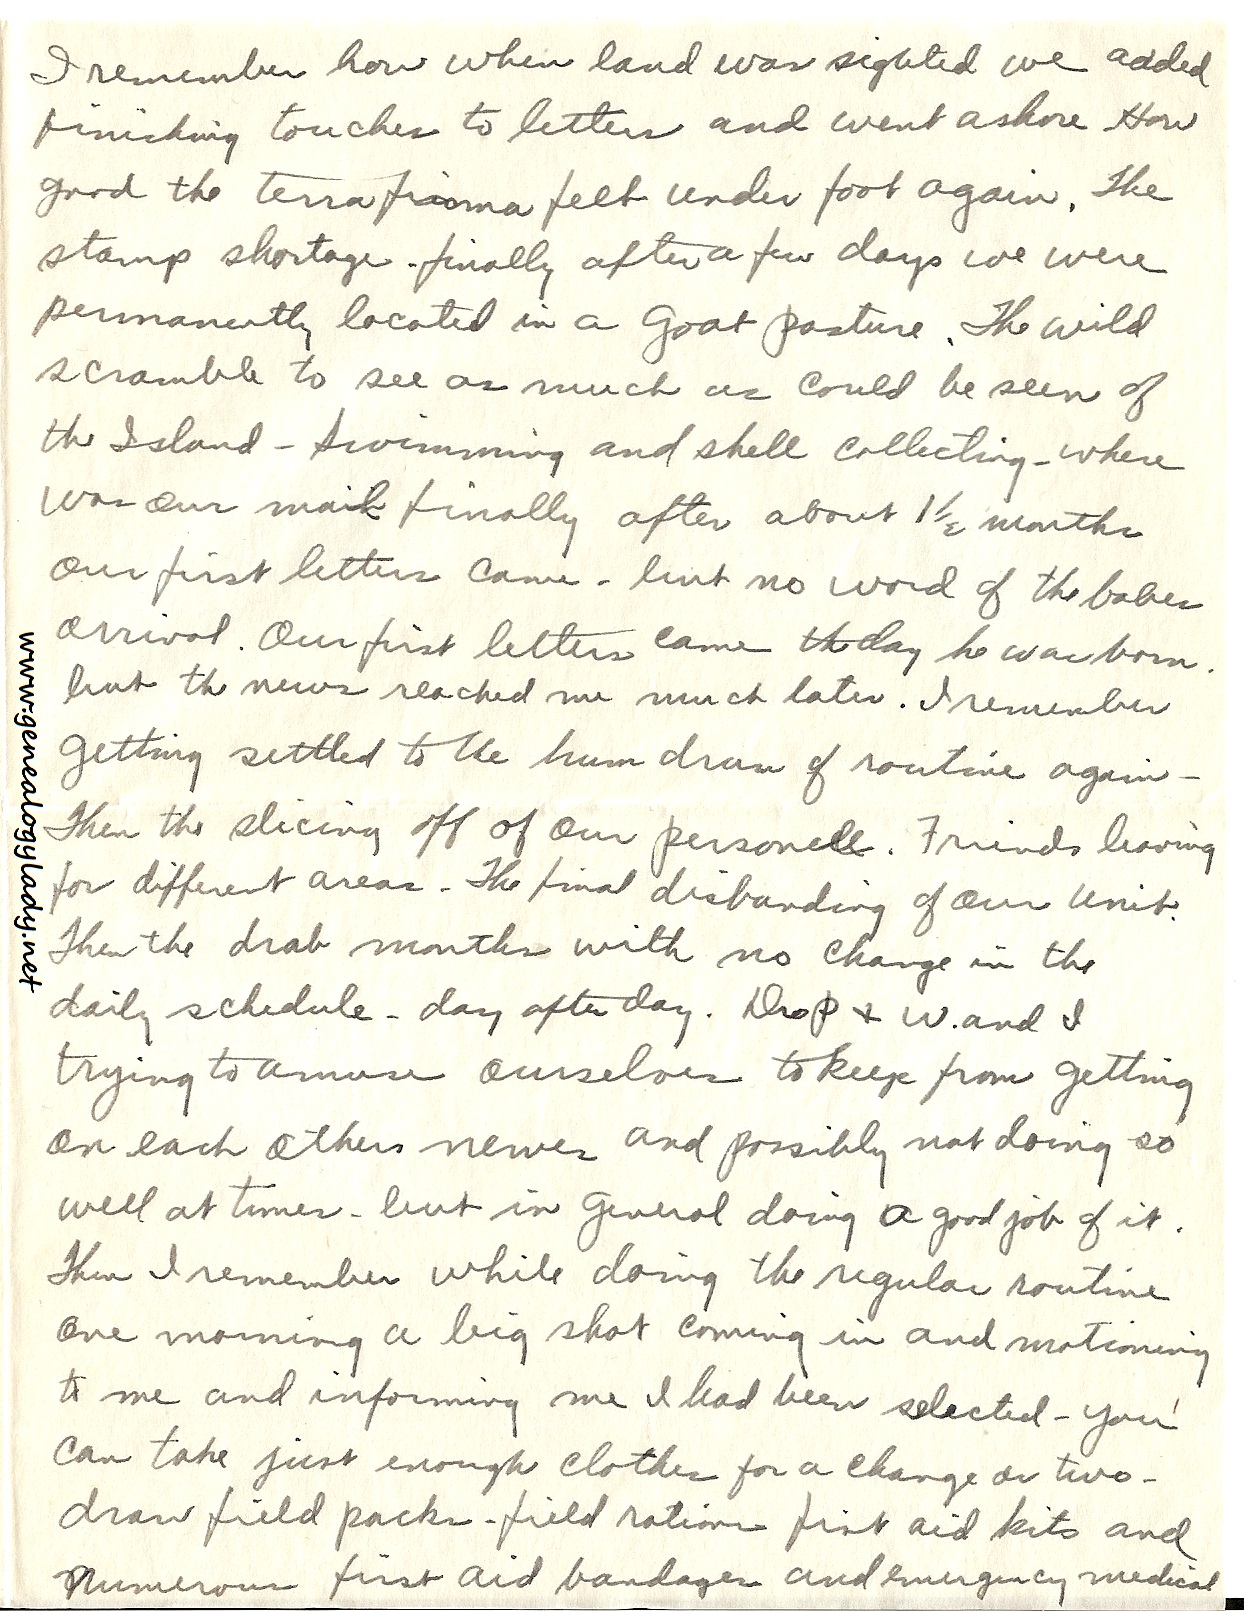 I remember how when land was sighted we added
finishing touches to letters and went ashore How
good the terra firma felt under foot again. The
stamp shortage - finally after a few days we were
permanently located in a Goat pasture. The wild
scramble to see as much as could be seen of
the Island - swimming and shell collecting - where
was our mail finally after about 1½ months
our first letters came - but no word of the babes
arrival. Our first letters came the day he was born.
but the news reached me much later. I remember
getting settled to the hum drum of routine again -
Then the slicing off of our personell. Friends leaving
for different areas - The final disbanding of our unit.
Then the drab months with no change in the
daily schedule - day after day. Drop + W. and I
trying to amuse ourselves to keep from getting
on each others nerves and possibly not doing so
well at times - but in general doing a good job of it.
Then I remember while doing the regular routine
one morning a big shot coming in and motioning
to me and informing me I had been selected - you
can take just enough clothes for a change or two -
draw field packs - field rations first aid kits and
numerous first aid bandages and emergency medical
www.genealogylady.net